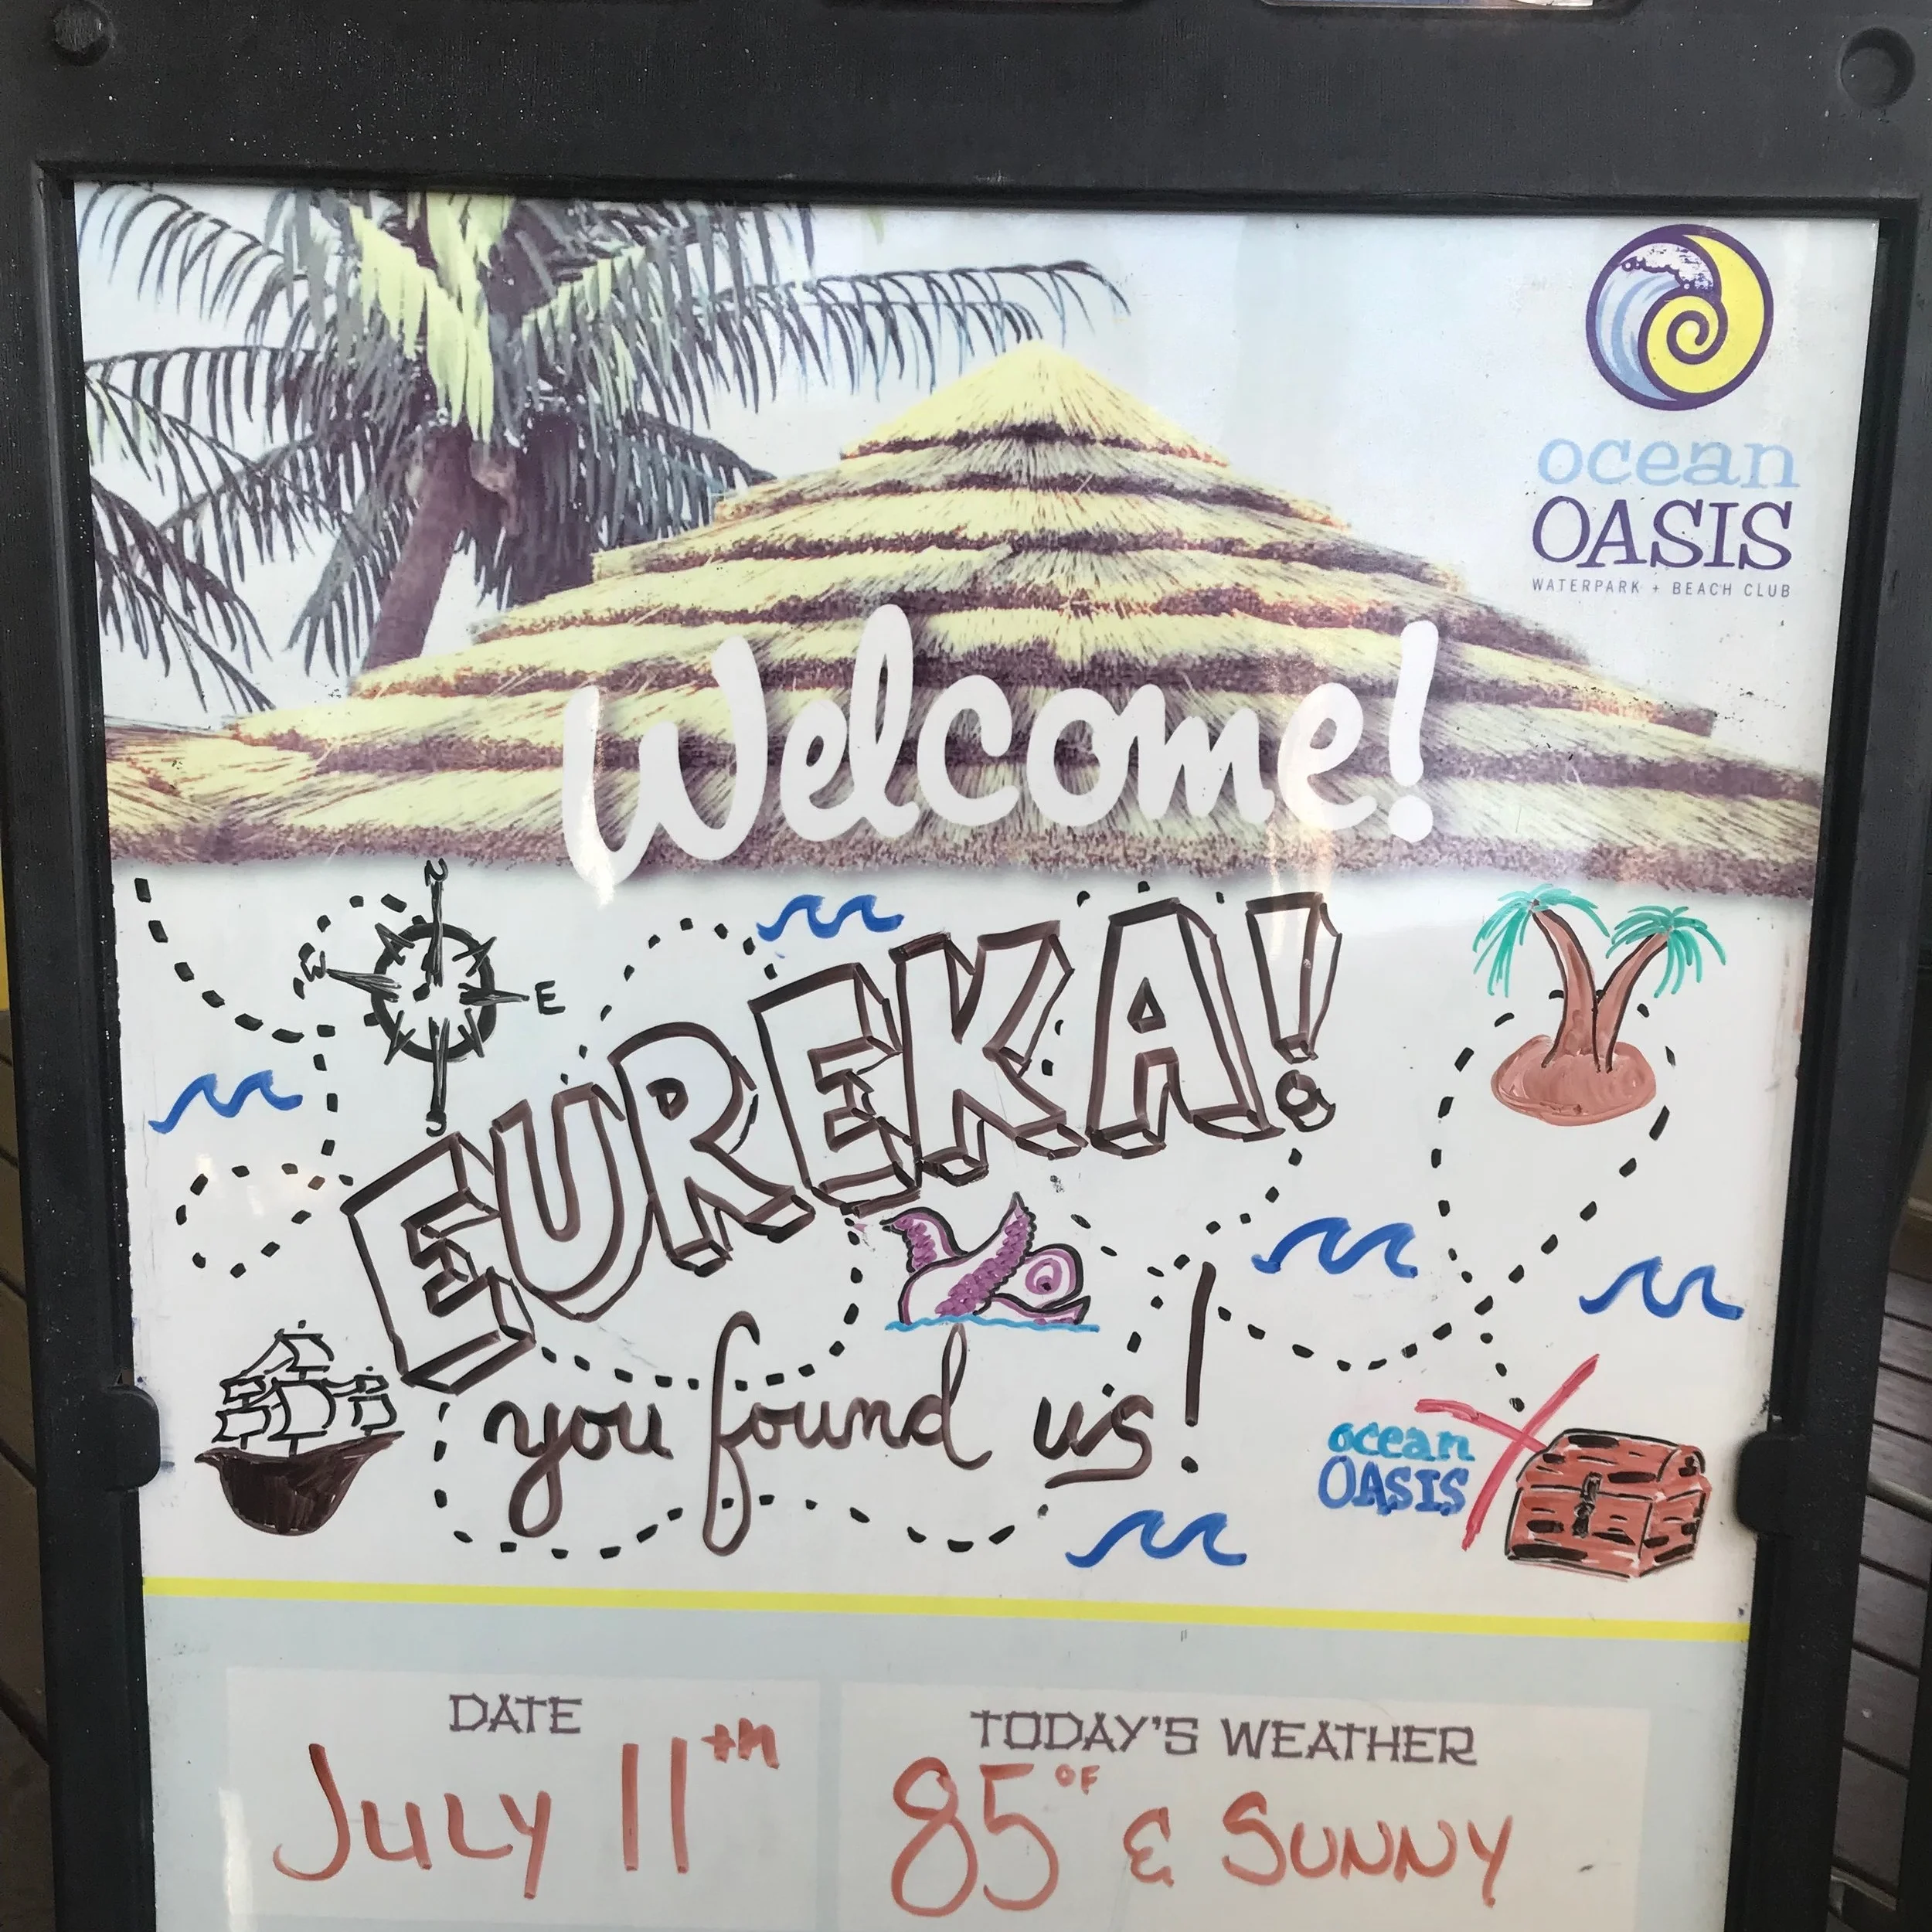 ocean
OASIS
WATERPARK + BEACH CLUB
Welcome!
N
W
E
S
EUREKA!
you found us!
ocean
OASIS
DATE
JULY 11th
TODAY'S WEATHER
85°F & SUNNY